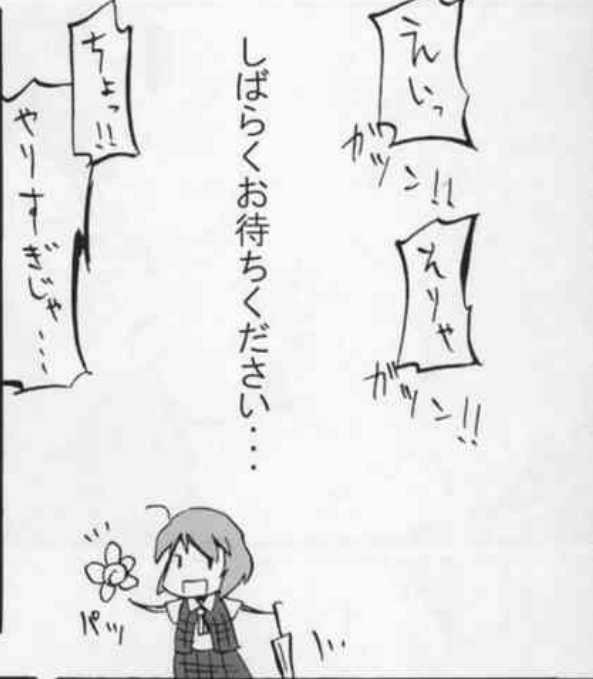 えいっ
ガツン!!
そりゃ
ガツン!!
しばらくお待ちください・・・
ちょっ!!
やりすぎじゃ・・・
パッ